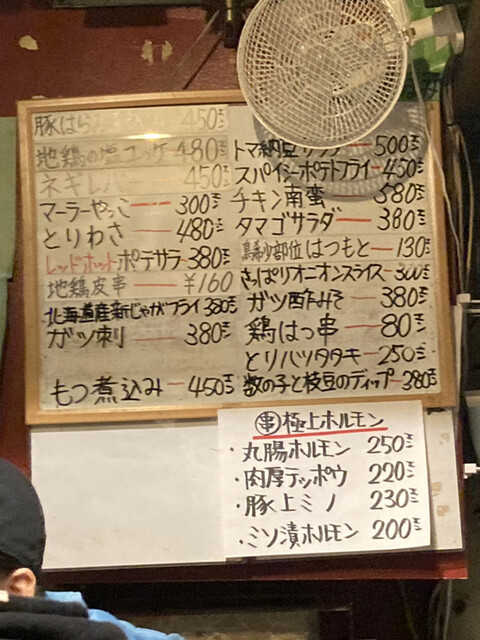 豚はら 450円
地鶏の塩ユッケ 480円
ネギレバー 450円
マーラーやっこ 300円
とりわさ 480円
レッドホットポテサラ 380円
地鶏皮串 ¥160
北海道産新じゃがフライ 380円
ガツ刺 380円
もつ煮込み 450円
トマ納豆 500円
スパイシーポテトフライ 450円
チキン南蛮 580円
タマゴサラダ 380円
鳥希少部位はつもと 130円
さっぱりオニオンスライス 300円
ガツ酢みそ 380円
鶏はつ串 80円
とりハツタタキ 250円
数の子と枝豆のディップ 380円
串 極上ホルモン
・丸腸ホルモン 250円
・肉厚テッポウ 220円
・豚上ミノ 230円
・ミソ漬ホルモン 200円